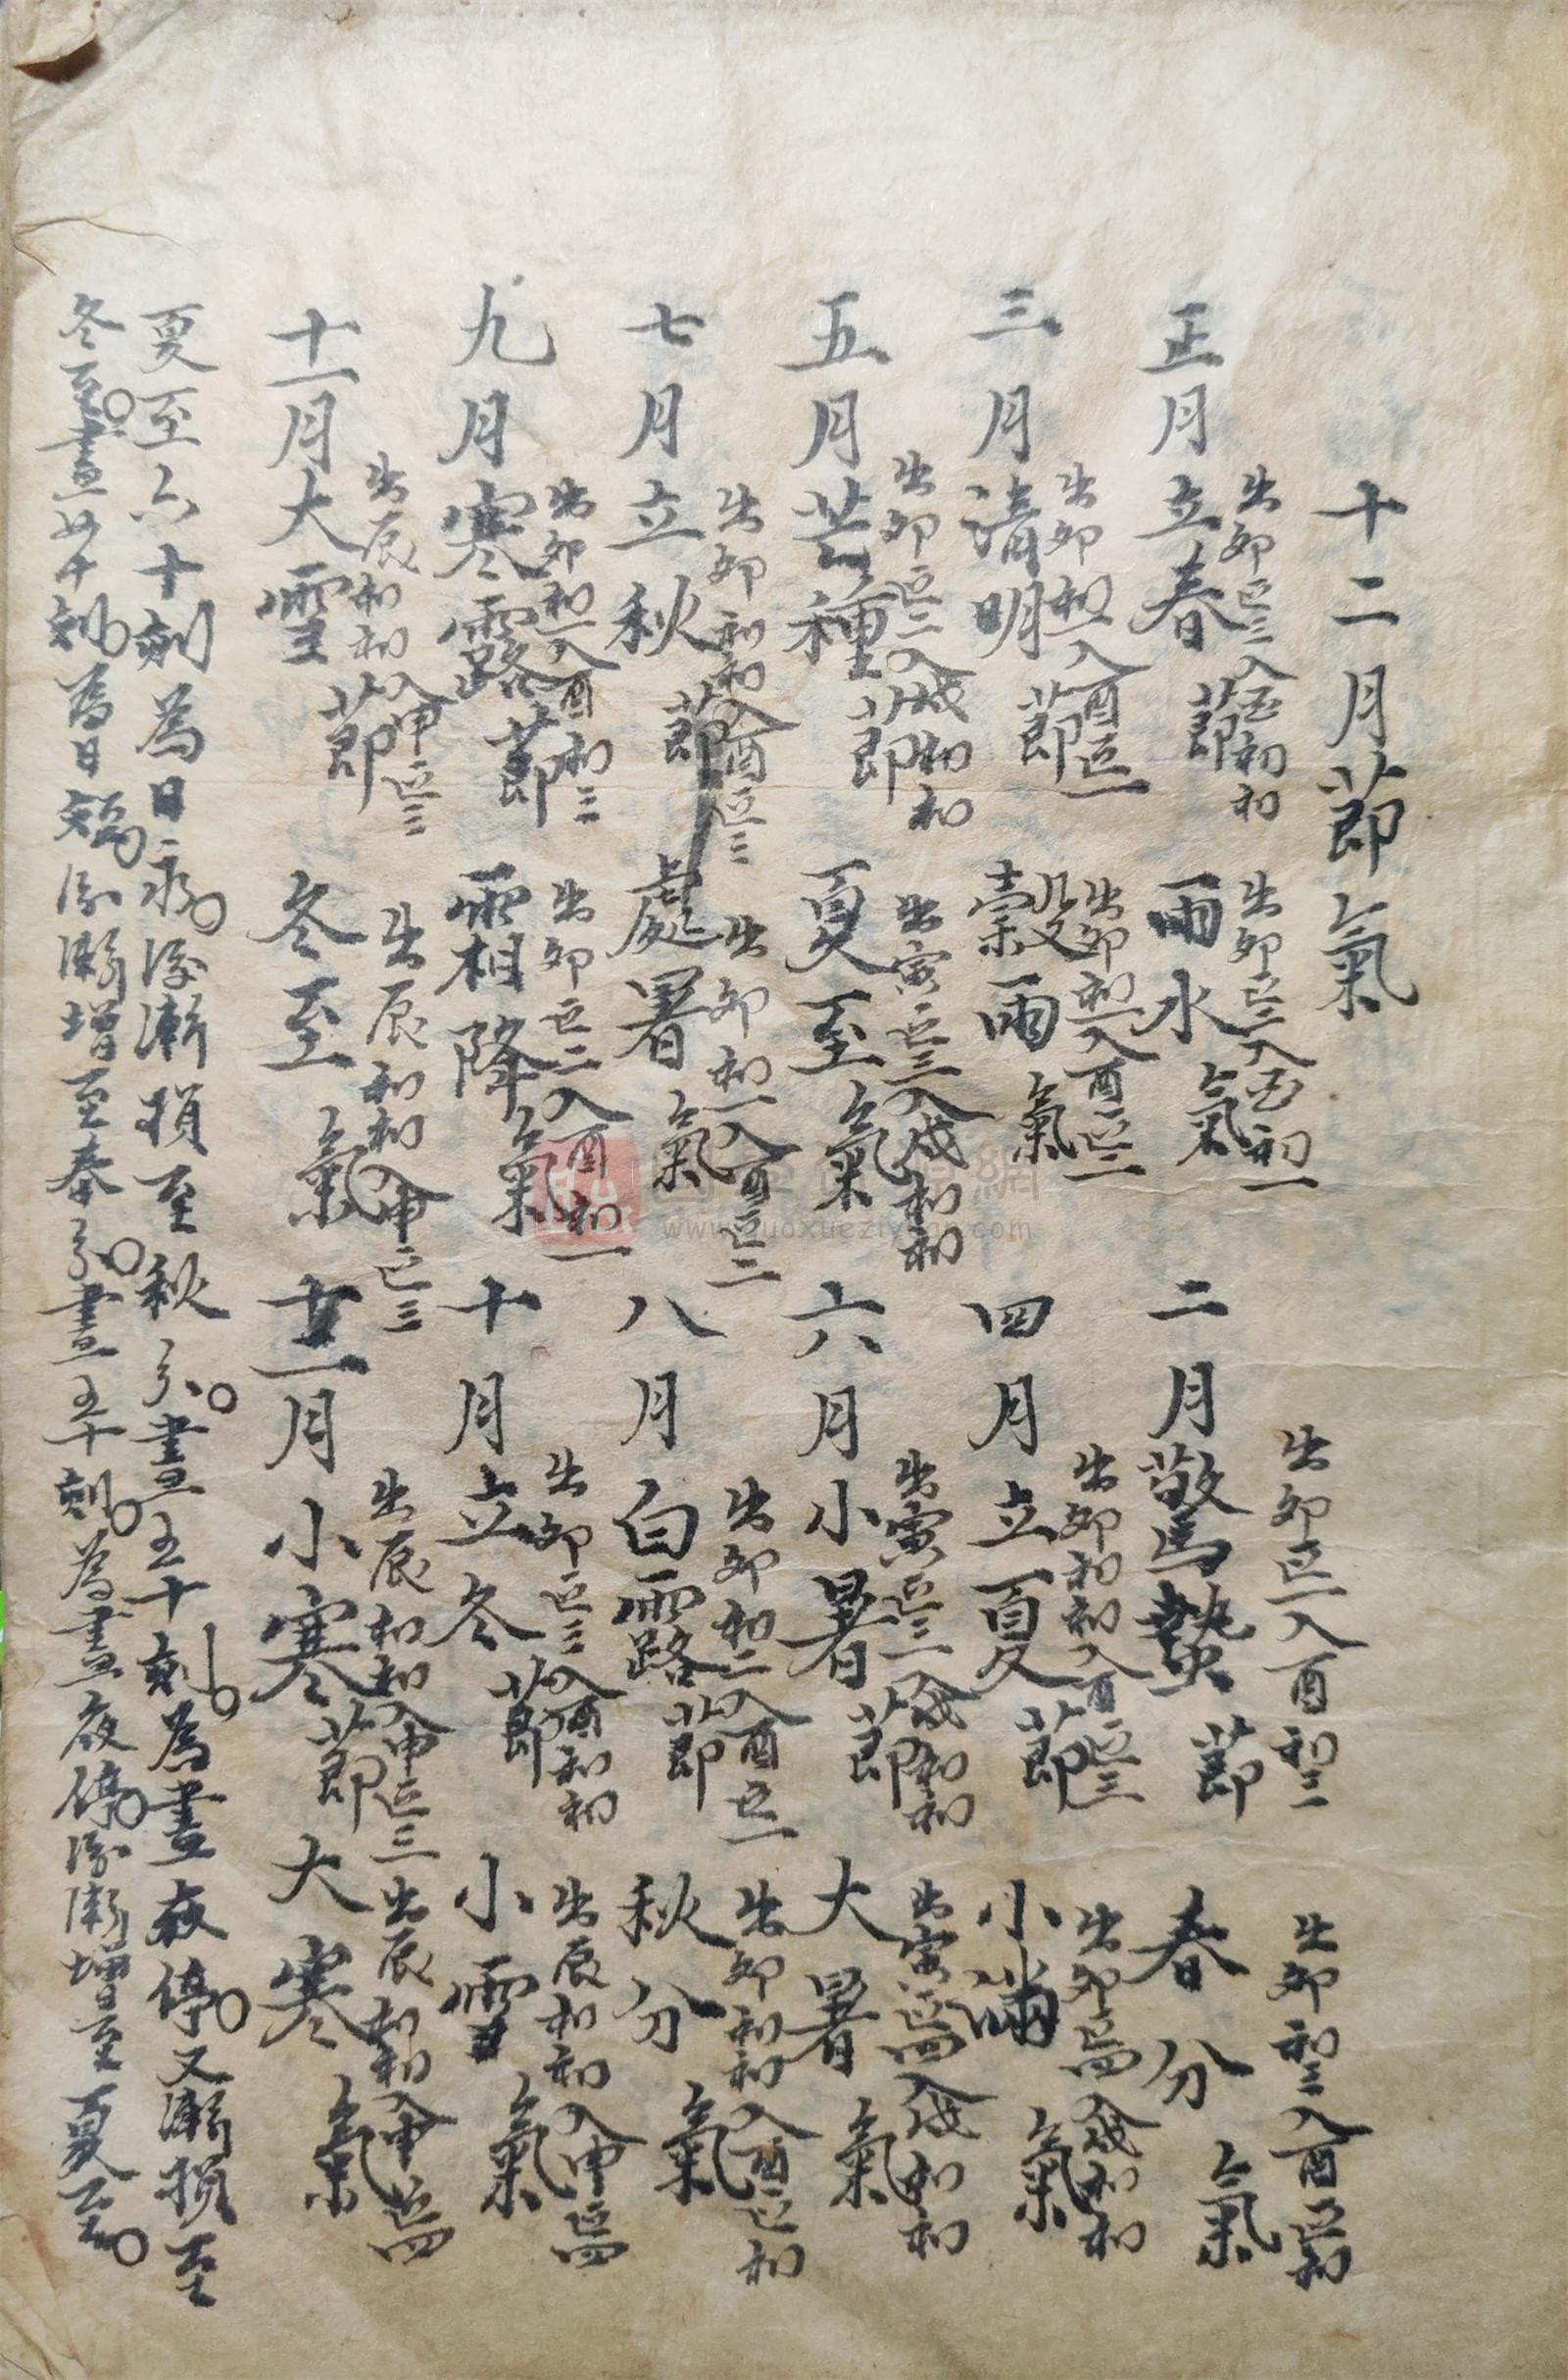 十二月莭氣
正月立春莭 出卯正三入酉初初 雨水氣 出卯正二入酉初一 二月驚蟄莭 出卯正一入酉初二 春分氣 出卯初三入酉正初
三月清明莭 出卯初二入酉正一 穀雨氣 出卯初一入酉正二 四月立夏莭 出卯初初入酉正三 小滿氣 出卯正四入戌初初
五月芒種莭 出卯正二入戌初初 夏至氣 出寅正三入戌初初 六月小暑莭 出寅正三入戌初初 大暑氣 出寅正四入戌初初
七月立秋莭 出卯初初入酉正三 處暑氣 出卯初一入酉正二 八月白露莭 出卯初二入酉正一 秋分氣 出卯初初入酉正初
九月寒露莭 出卯初一入酉初三 霜降氣 出卯正二入酉初一 十月立冬莭 出卯正三入酉初初 小雪氣 出辰初初入申正四
十一月大雪莭 出辰初初入申正三 冬至氣 出辰初初入申正三 十二月小寒莭 出辰初初入申正三 大寒氣 出辰初初入申正四
夏至六十刻為日永。後漸損至秋分。晝五十刻。為晝夜停。又漸損至
冬至。晝四十刻。為日短。後漸增至春分。晝五十刻。為晝夜停。後漸增至夏至。
www.guoxueziyuan.com